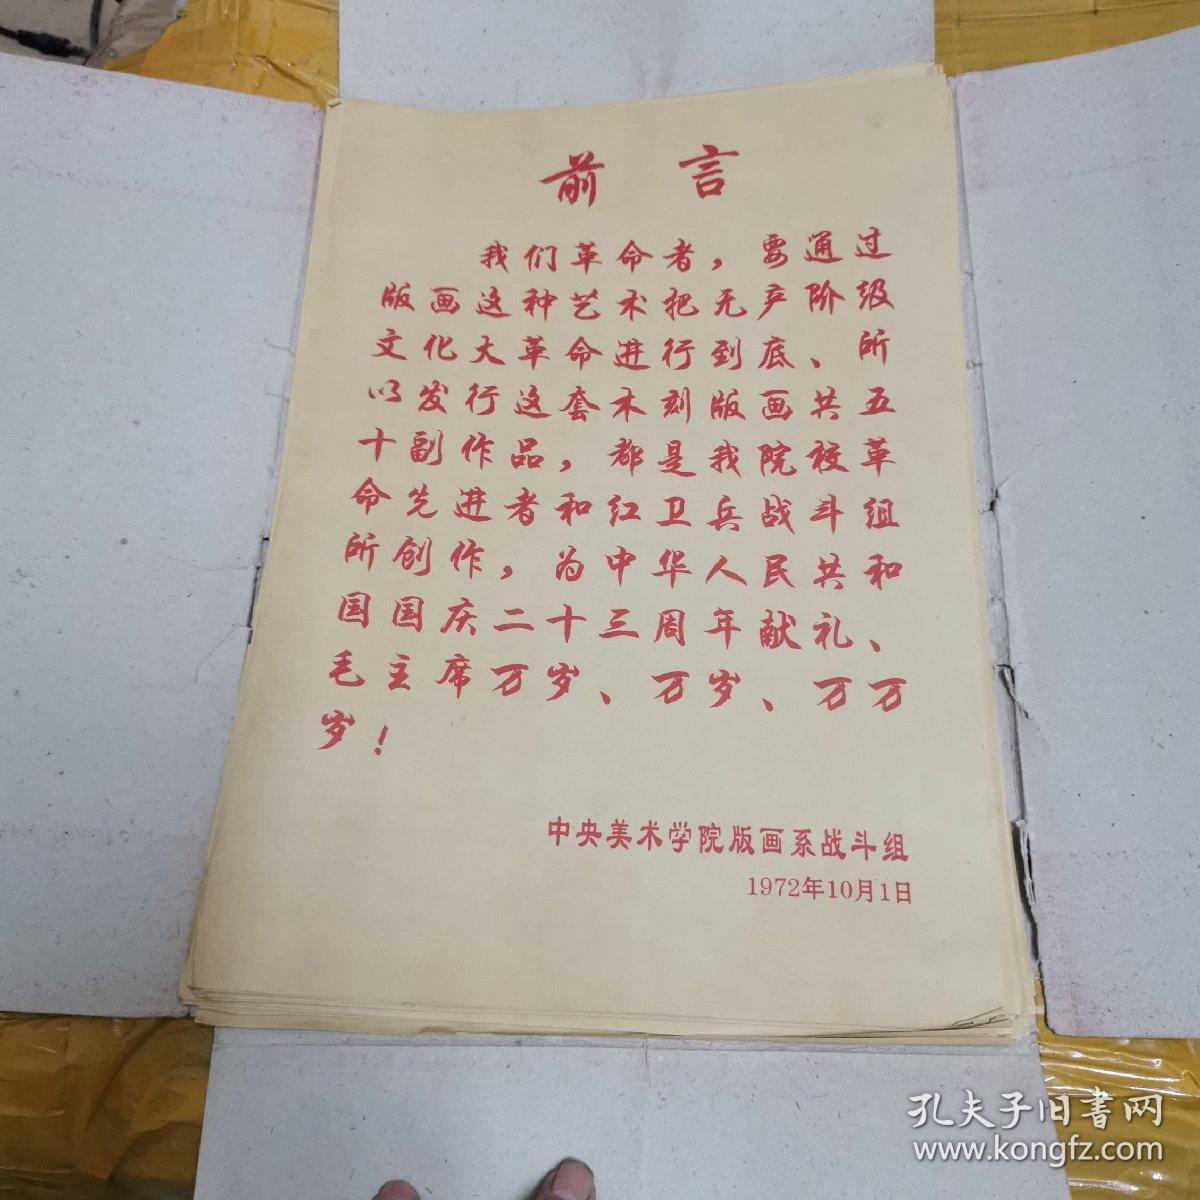 前言
我们革命者，要通过
版画这种艺术把无产阶级
文化大革命进行到底、所
以发行这套木刻版画共五
十副作品，都是我院校革
命先进者和红卫兵战斗组
所创作，为中华人民共和
国国庆二十三周年献礼、
毛主席万岁、万岁、万万
岁！
中央美术学院版画系战斗组
1972年10月1日
孔夫子旧書网
www.kongfz.com